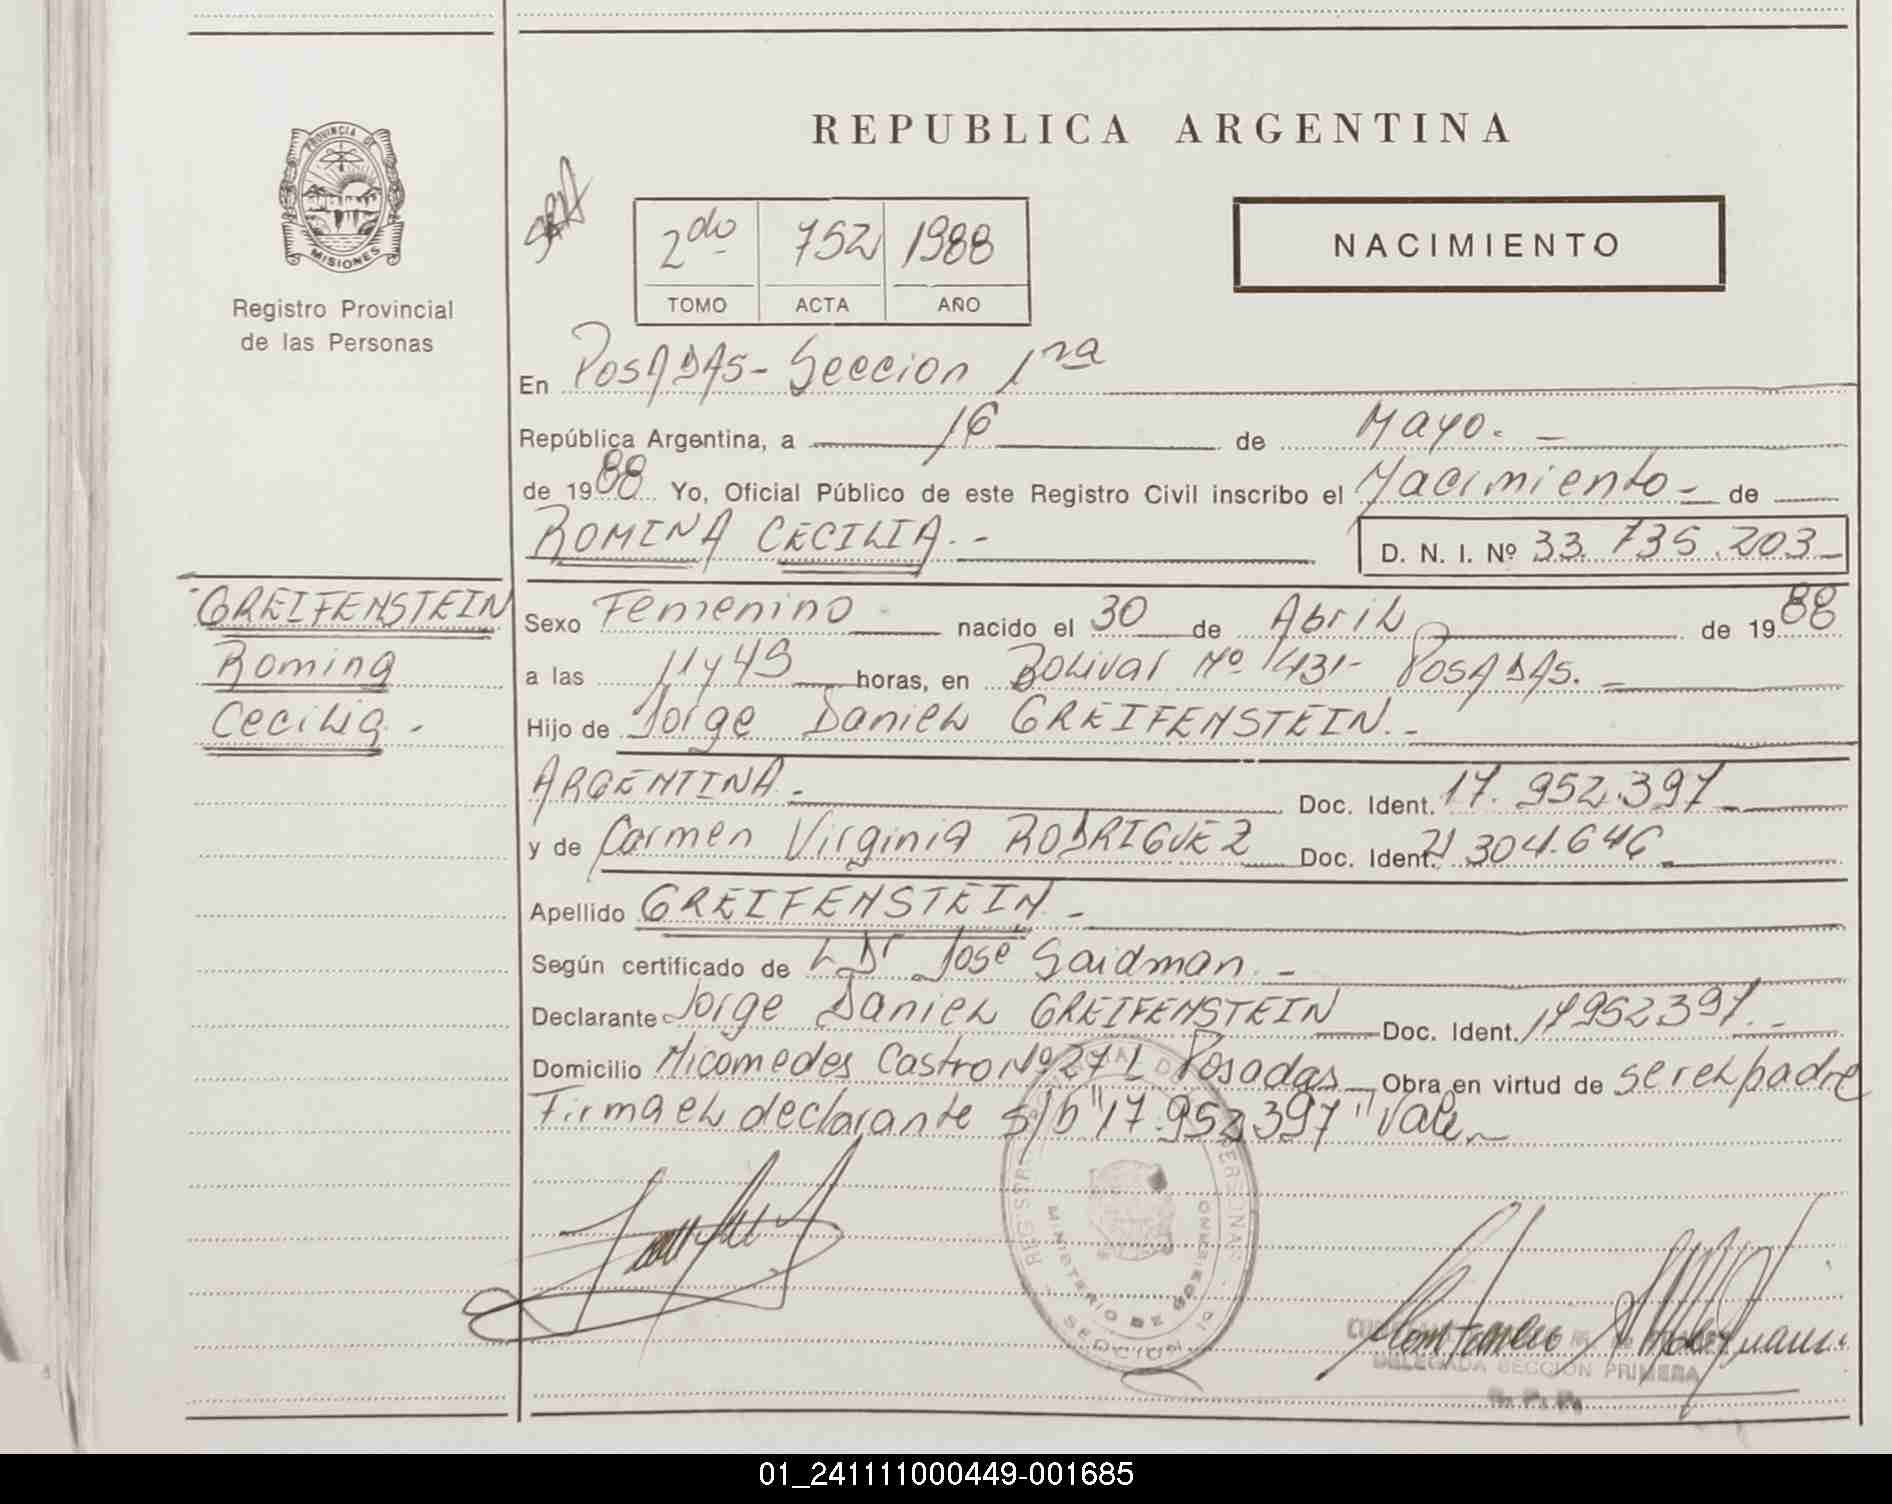 PROVINCIA DE
MISIONES
Registro Provincial
de las Personas
REPUBLICA ARGENTINA
2do 752 1988
TOMO ACTA AÑO
NACIMIENTO
En POSADAS - Seccion 1ra
República Argentina, a 16 de Mayo. -
de 1988 Yo, Oficial Público de este Registro Civil inscribo el Nacimiento - de
ROMINA CECILIA. -
D. N. I. Nº 33.735.203 -
GREIFENSTEIN
Romina
Cecilia. -
Sexo Femenino nacido el 30 de Abril de 1988
a las 11 y 45 horas, en Bolivar Nº 1431 - POSADAS. -
Hijo de Jorge Daniel GREIFENSTEIN. -
ARGENTINA. - Doc. Ident. 17.952.397 -
y de Carmen Virginia RODRIGUEZ Doc. Ident. 21 304.646 -
Apellido GREIFENSTEIN. -
Según certificado de L Dr José Gaidman. -
Declarante Jorge Daniel GREIFENSTEIN Doc. Ident. 17952397. -
Domicilio Nicomedes Castro Nº 271 Posadas - Obra en virtud de ser el padre
Firma el declarante s/b "17.952,397" Vale -
MINISTERIO DE GOBIERNO
SECCION 1a
DELEGADA SECCION PRIMERA
R. P. P.
01_241111000449-001685